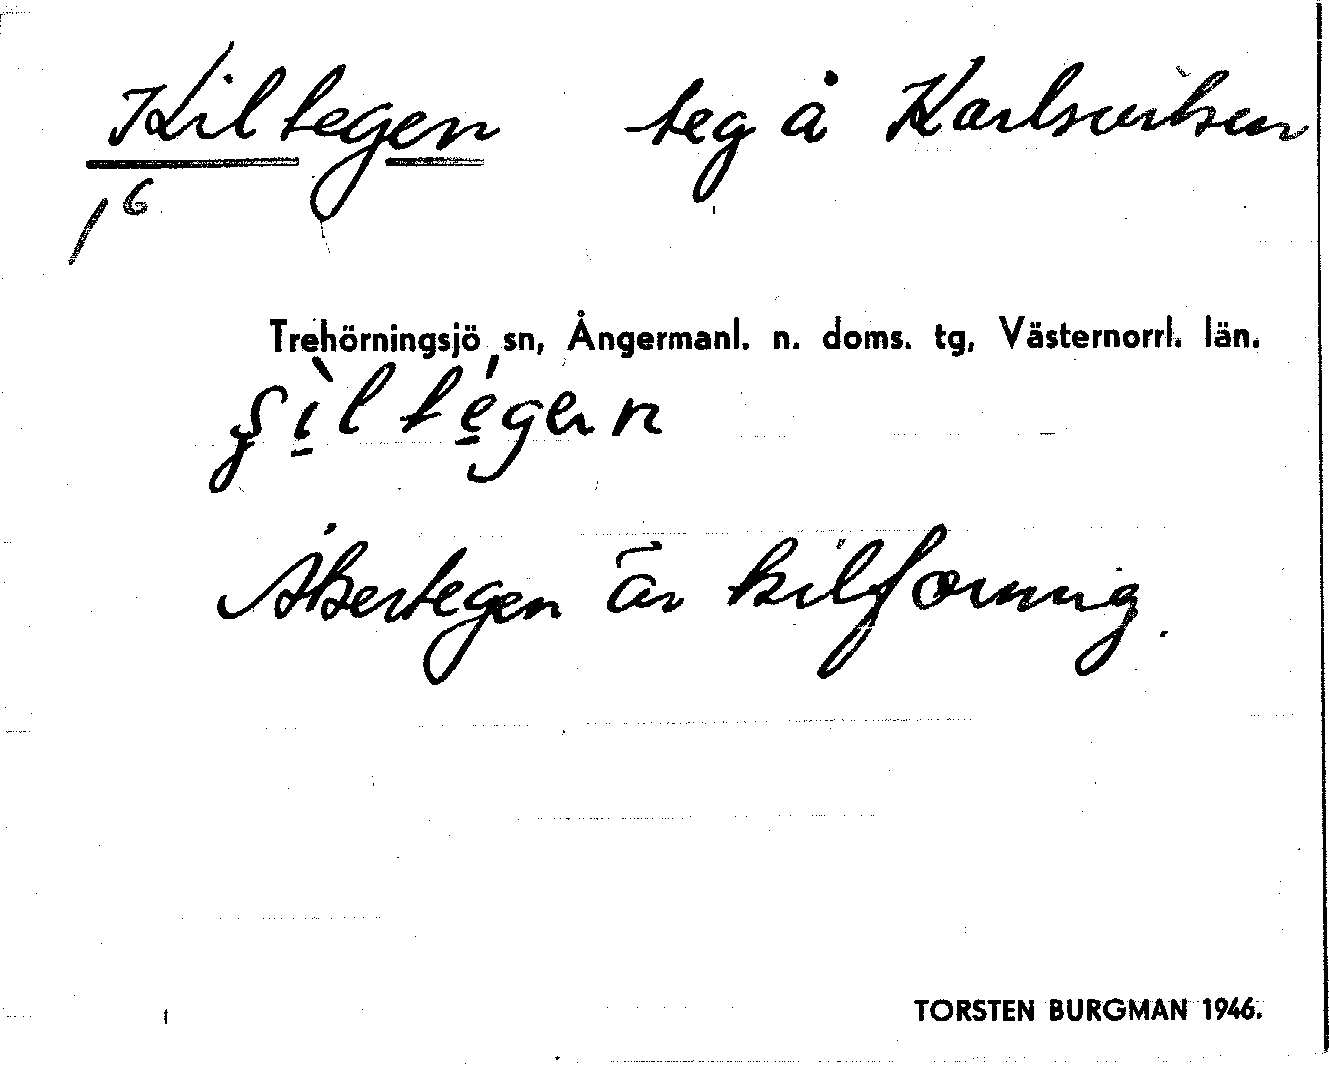 Kiltegen teg å Karlsviken
1 6
Trehörningsjö sn, Ångermanl. n. doms. tg, Västernorrl. län.
Åkertegen är kilformig.
TORSTEN BURGMAN 1946.